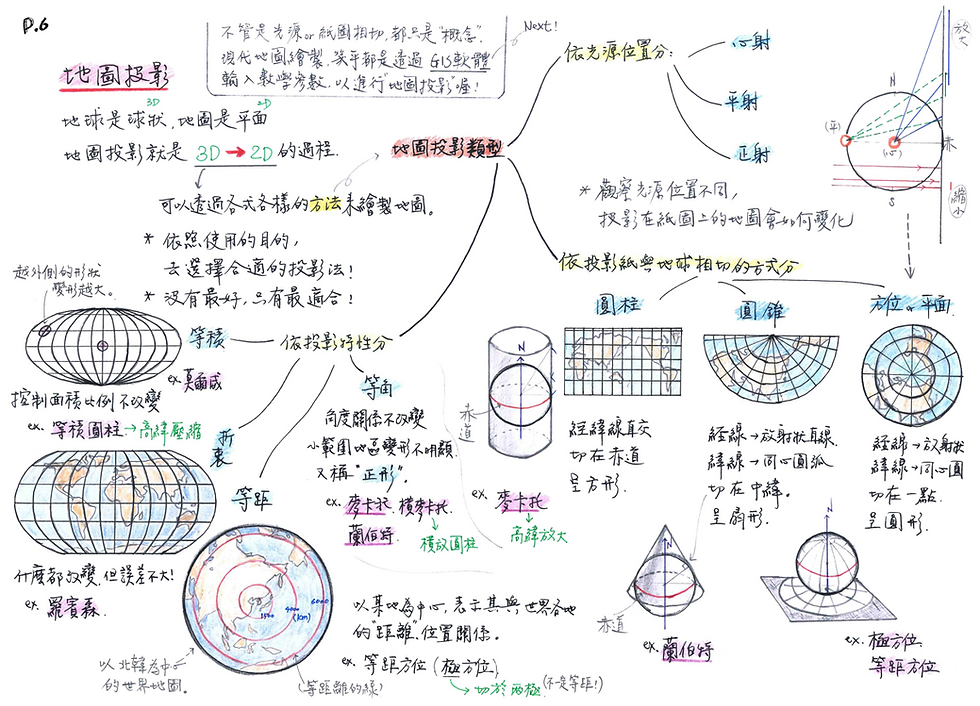 P.6
不管是光源or紙圖相切,都只是"概念".
現代地圖繪製,幾乎都是透過 GIS軟體
輸入數學參數,以進行"地圖投影"喔!
Next!
地圖投影
3D 2D
地球是球狀,地圖是平面
地圖投影就是 3D → 2D 的過程.
可以透過各式各樣的方法來繪製地圖。
* 依照使用的目的,
去選擇合適的投影法!
* 沒有最好,只有最適合!
地圖投影類型
依光源位置分:
心射
平射
正射
* 觀察光源位置不同,
投影在紙圖上的地圖會如何變化
放大
N
(平)
(心)
赤
S
縮小
依投影紙與地球相切的方式分
圓柱
N
赤道
經緯線直交
切在赤道
呈方形.
ex. 麥卡托
→ 高緯放大
圓錐
經線→放射狀直線.
緯線→同心圓弧
切在中緯。
呈扇形.
N
赤道
ex. 蘭伯特
方位 or 平面
經線→放射狀
緯線→同心圓
切在一點.
呈圓形.
N
ex. 極方位
等距方位
依投影特性分
等積
越外側的形狀
變形越大。
ex. 莫爾威
控制面積比例不改變
ex. 等積圓柱→高緯壓縮
折衷
什麼都改變,但誤差不大!
ex. 羅賓森.
等角
角度關係不改變
小範圍地區變形不明顯
又稱"正形".
ex. 麥卡托、橫麥卡托
→ 橫放圓柱
蘭伯特
等距
1500 4000 6000
(km)
以北韓為中心
的世界地圖。
(等距離的線)
以某地為中心,表示其與世界各地
的"距離"、位置關係。
ex. 等距方位 (極方位)
→ 切於兩極 (不是等距!)